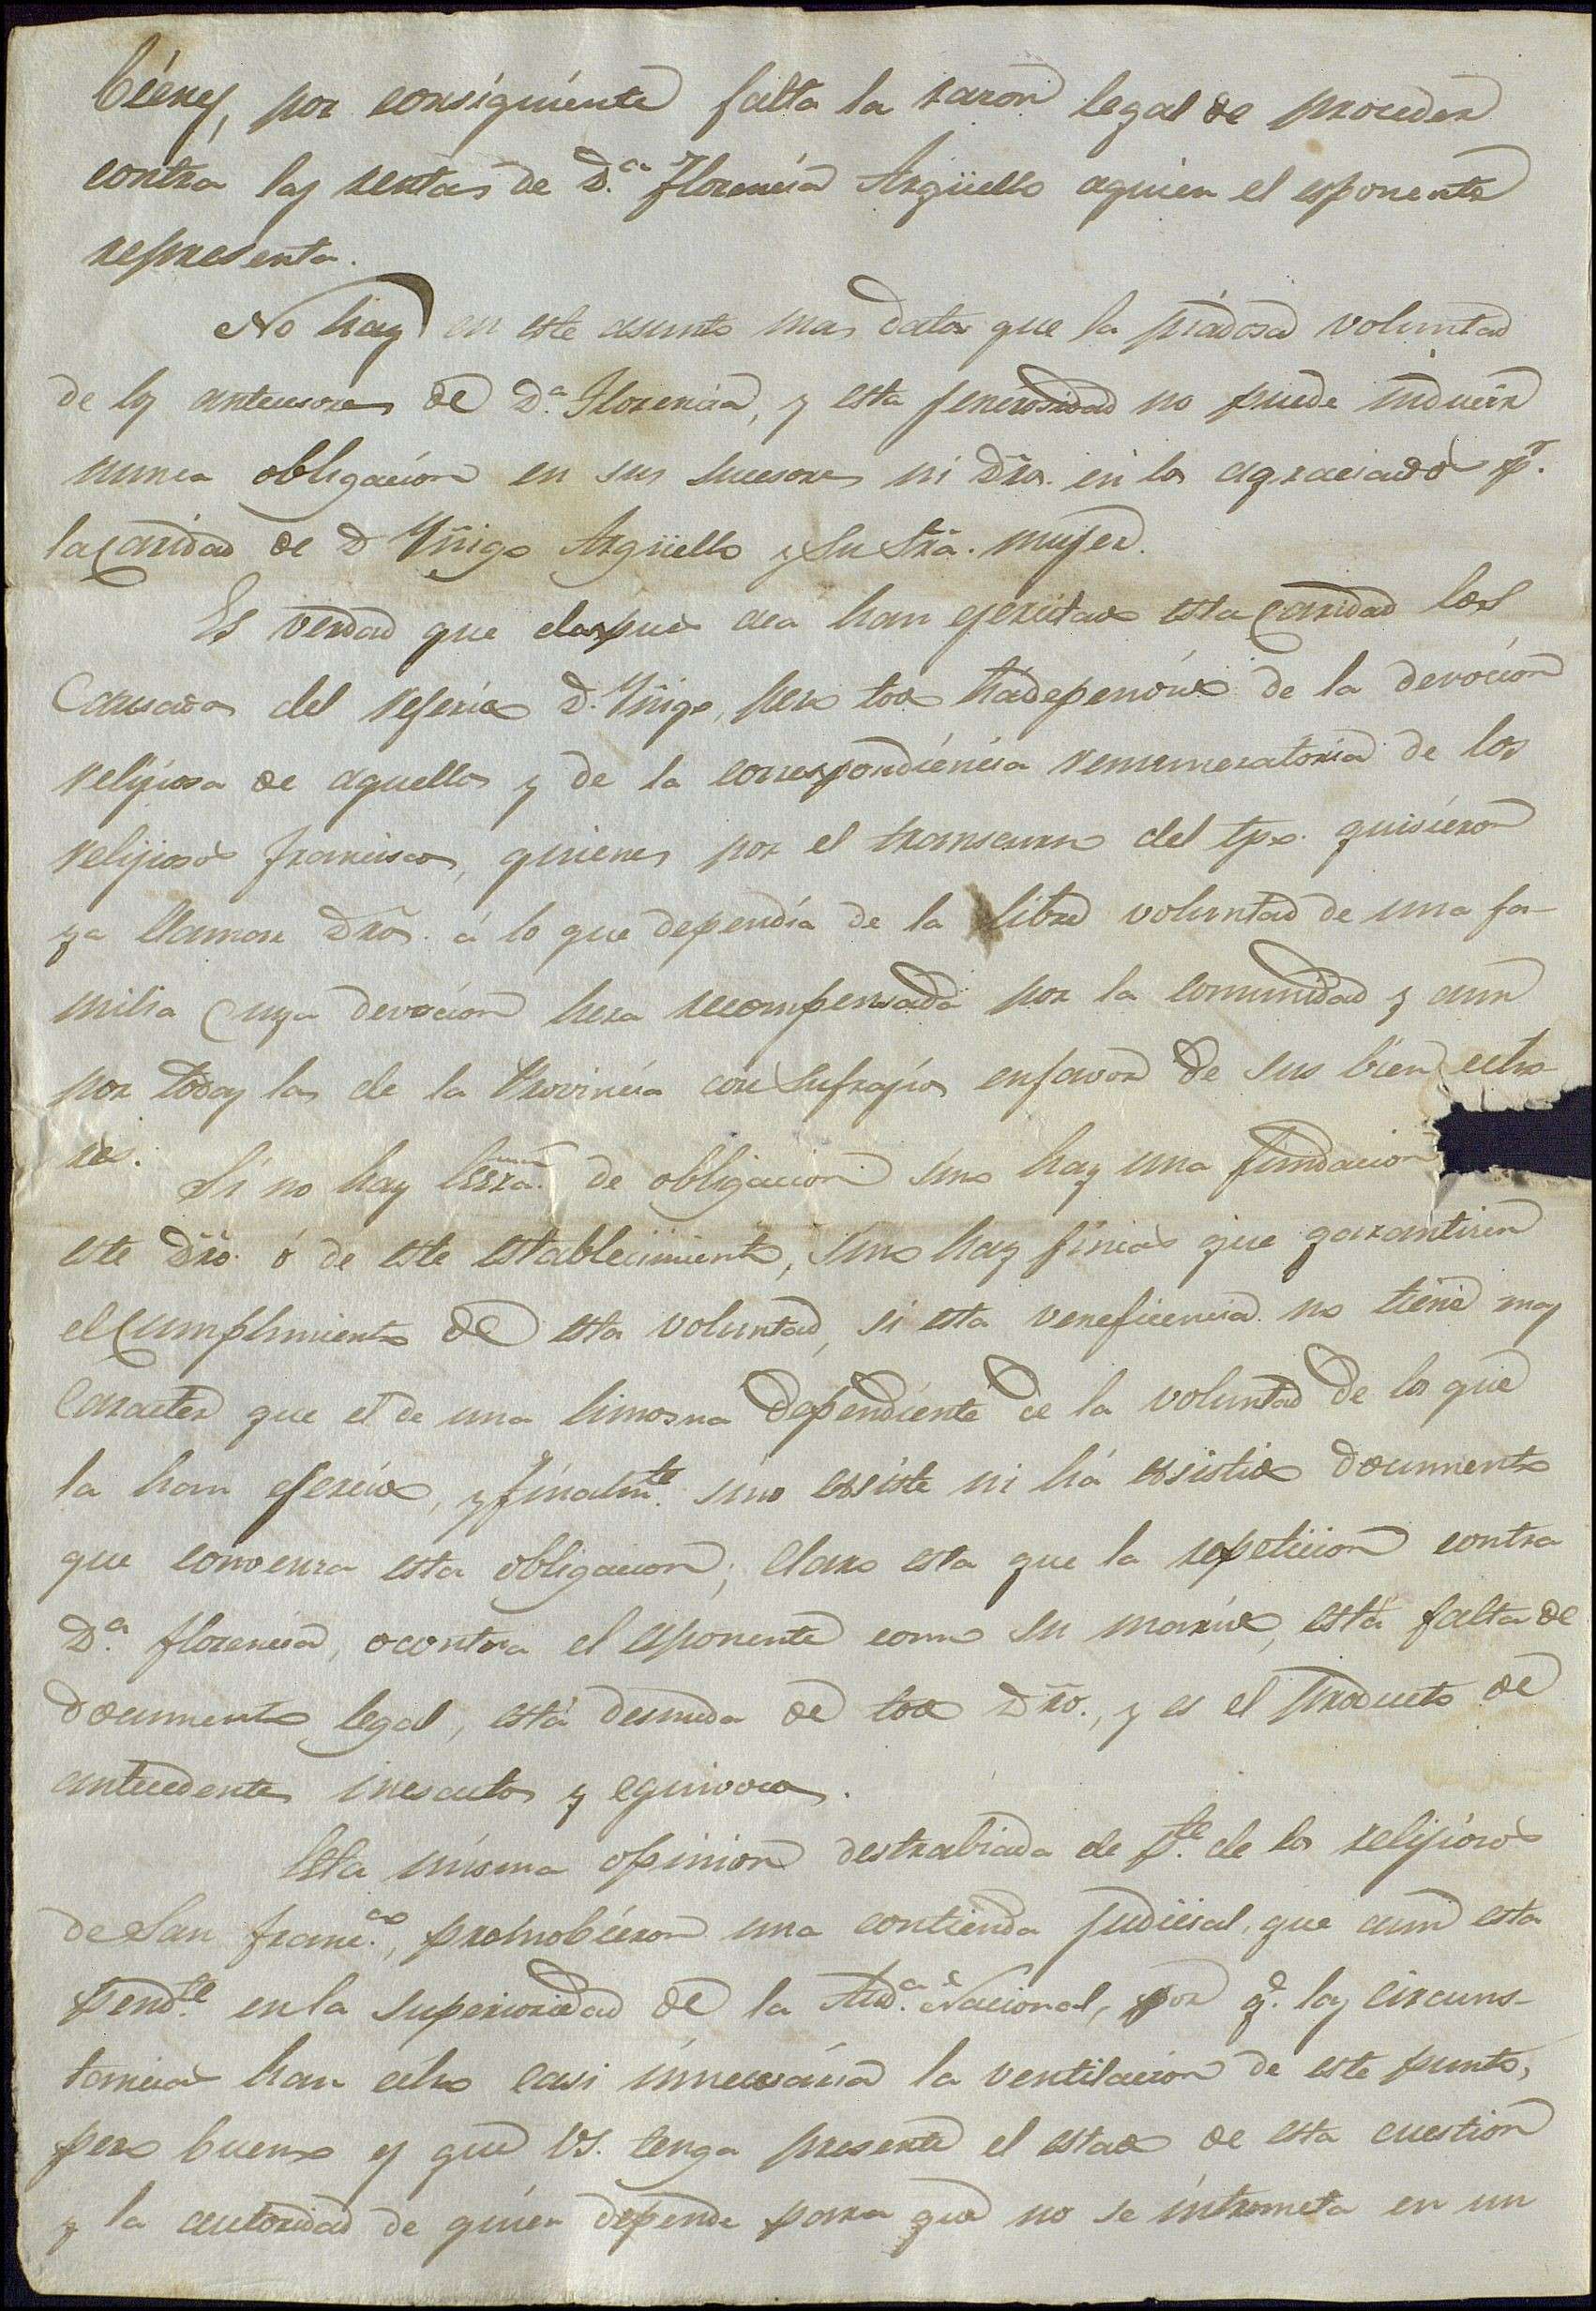 bienes, por consiguiente falta la razon legal de proceder
contra las rentas de D.ª Florencia Argüello aquien el esponente
representa.
No hay en este asunto mas datos que la piadosa voluntad
de los antecesores de D.ª Florencia, y esta jenerosidad no puede inducir
nunca obligacion en sus sucesores ni Dro. en los agraciados pr.
la Caridad de D Yñigo Argüello y Su Sra. mujer.
Es verdad que despues aca han ejecutado esta Caridad los
Causados del referido D. Yñigo, pero todo há dependido de la devocion
relijiosa de aquellos y de la correspondiencia remuneratoria de los
relijiosos franciscos, quienes por el transcurso del tpo. quisieron
ya llamar Dro. á lo que dependia de la libre voluntad de una fa-
milia Cuya devocion hera recompensada por la comunidad y aun
por todas las de la Provincia con Sufrajios enfavor de sus bien echo-
res.
Si no hay Escra. de obligacion sino hay una fundacion
este Dro. ó de este establecimiento, sino hay fincas que garantisen
el Cumplimiento de esta voluntad, si esta veneficencia no tiene mas
Caracter que el de una limosna dependiente de la voluntad de los que
la han ejercido, y finalmte. sino ecsiste ni há ecsistido documento
que convenza esta obligacion; Claro esta que la repeticion contra
D.ª Florencia, o contra el esponente como su marido, está falta de
documento legal, está desnuda de todo Dro., y es el producto de
antecedentes inesactos y equivocos.
Esta misma opinion destrabiada de pte. de los relijiosos
de San Franc.co, promobieron una contienda judicial, que aun esta
pendte. en la superioridad de la Aud.ª Nacional, por q.e las circuns-
tancias han echo casi innecesaria la ventilacion de este punto,
pero bueno es que VS. tenga presente el estado de esta cuestion
y la autoridad de quien depende para que no se intrometa en un